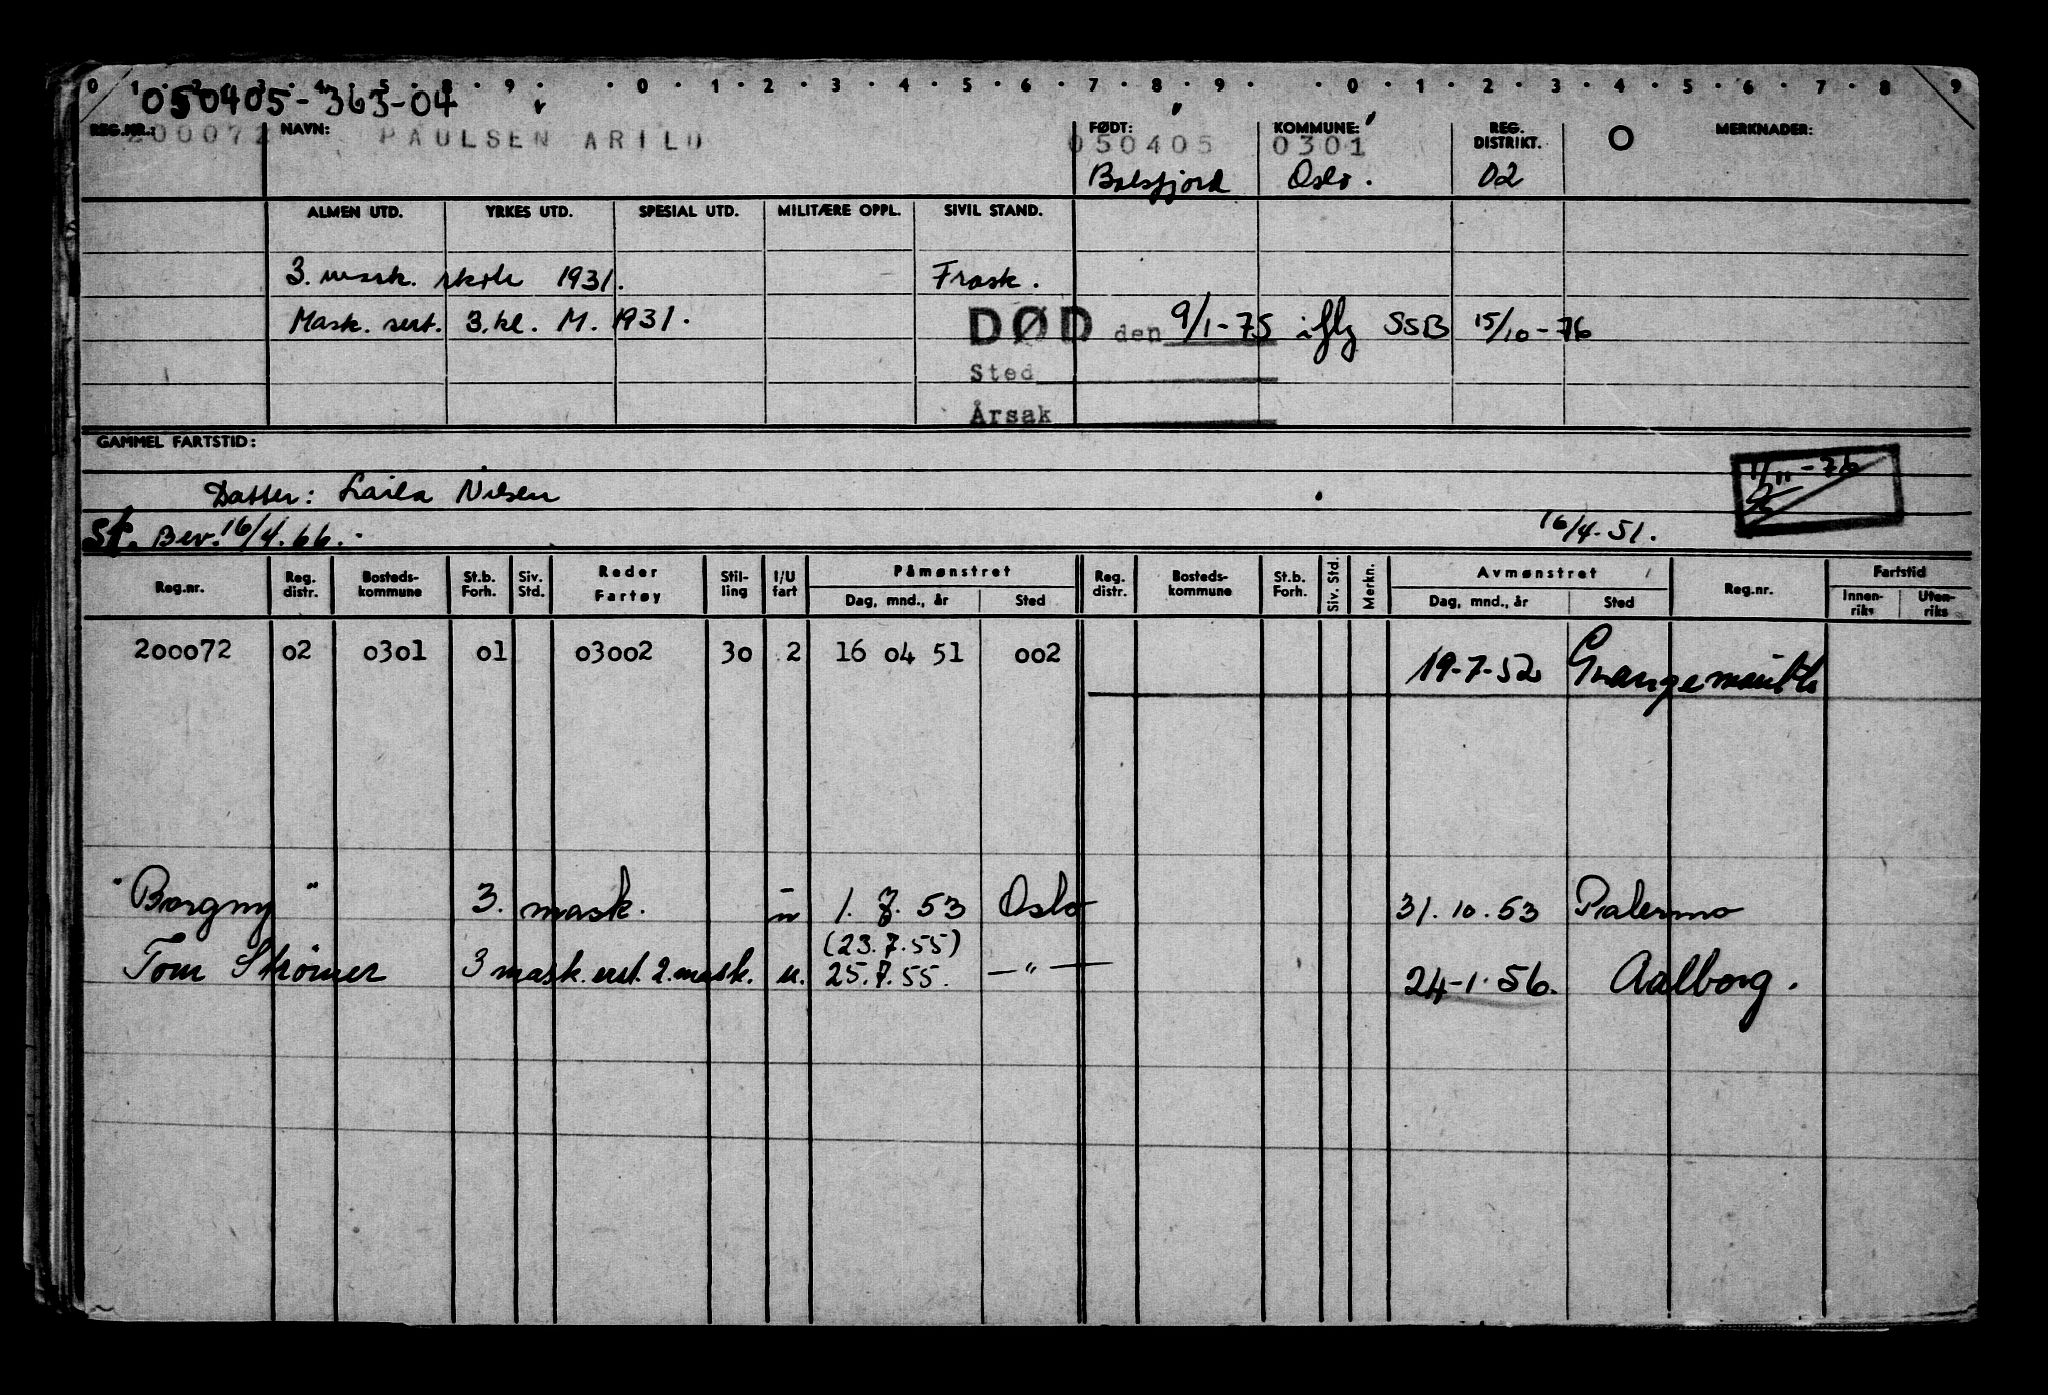 0 1 2 3 4 5 8 9 0 1 2 3 4 5 6 7 8 9 0 1 2 3 4 5 6 7 8 9
050405-363-04
REG.NR.: NAVN: FØDT: KOMMUNE: REG. DISTRIKT. O MERKNADER:
200072 PAULSEN ARILD 050405 0301
Balsfjord Oslo. 02
ALMEN UTD. YRKES UTD. SPESIAL UTD. MILITÆRE OPPL. SIVIL STAND.
3. mask. skole 1931. Frask.
Mask. sert. 3. kl. M. 1931.
DØD den 9/1-75 iflg SSB 15/10-76
Sted
Årsak
GAMMEL FARTSTID:
1/11-76
Datter: Laila Nilsen
St. Bev. 16/4.66. 16/4-51.
Reg.nr. Reg. distr. Bosteds-kommune St.b. Forh. Siv. Std. Reder Fartøy Stil-ling I/U fart Påmønstret Dag, mnd., år Sted Reg. distr. Bosteds-kommune St.b. Forh. Siv. Std. Merkn. Avmønstret Dag, mnd., år Sted Reg.nr. Fartstid Innen-riks Uten-riks
200072 02 0301 01 03002 30 2 16 04 51 002 19-7-52 Grangemouth
"Borgny" 3. mask. u 1. 7. 53 Oslo 31. 10. 53 Palermo
(23.7.55)
Tom Strømer 3 mask. erst. 2. mask. u. 25.7.55. —"— 24-1-56. Aalborg.